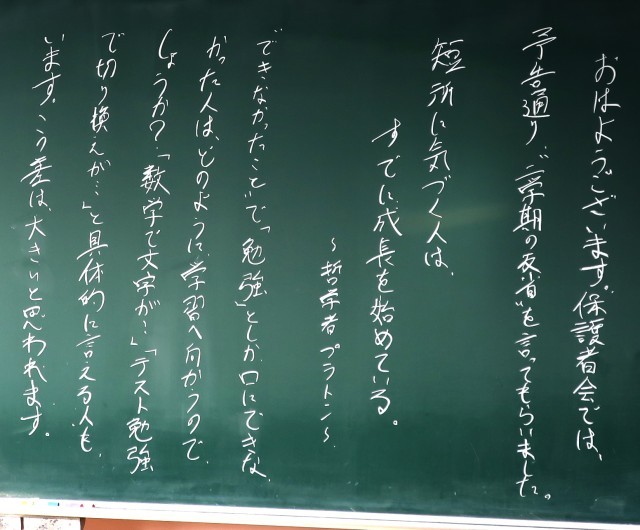 おはようございます。保護者会では、
予告通り、“一学期の反省”を言ってもらいました。
短所に気づく人は、
すでに成長を始めている。
～哲学者 プラトン～
できなかったこと”で「勉強」としか口にできな
かった人は、どのように、学習へ向かうので
しょうか？「数学で文字が…」「テスト勉強
で切り換えが…」と具体的に言える人も
います。この差は、大きいと思われます。